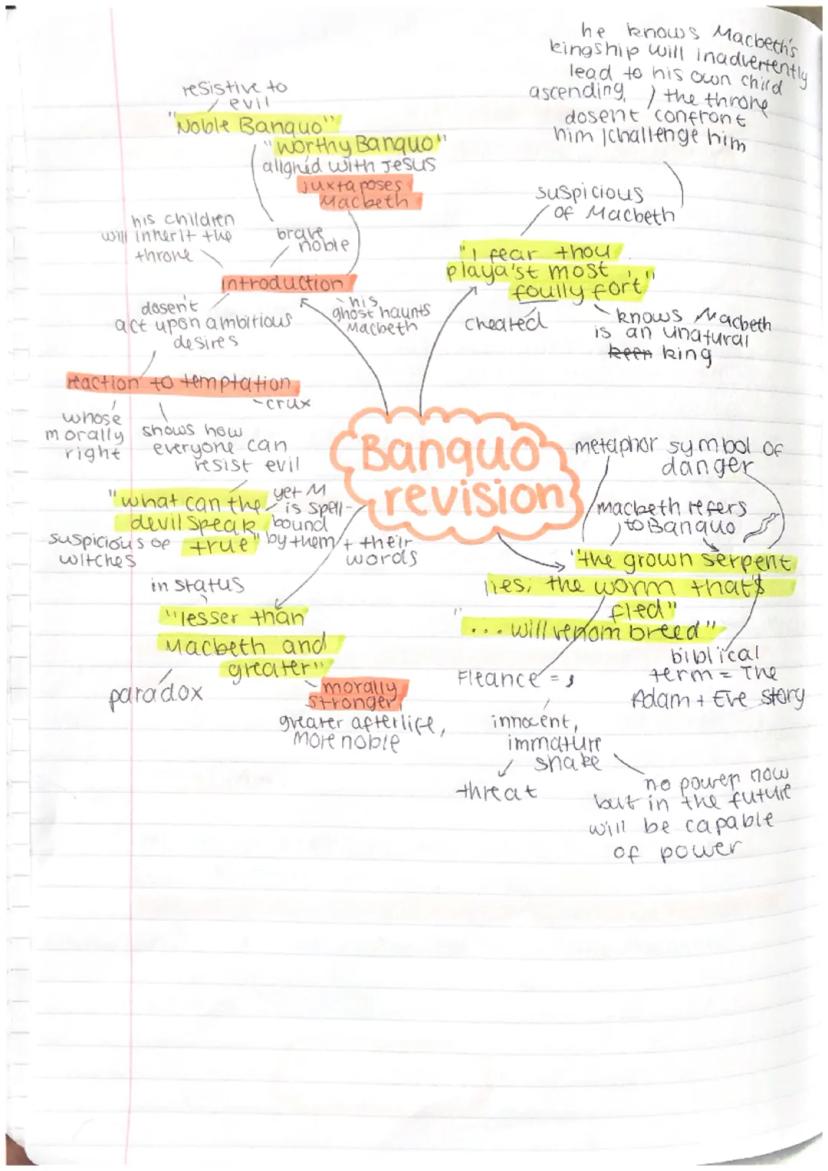 he knows Macbeth's
kingship will inadvertently
lead to his own child
ascending / the throne
dosent confront
him / challenge him
resistive to
evil
"Noble Banquo"
"worthy Banquo"
aligned with Jesus
juxtaposes
Macbeth
his children
will inherit the
throne
brave
noble
introduction
his
ghost haunts
Macbeth
dosen't
act upon ambitious
desires
reaction to temptation
crux
whose
morally
right
shows how
everyone can
resist evil
"what can the
devil speak
true"
yet M
is spell-
bound
by them + their
words
suspicious of
witches
suspicious
of Macbeth
"I fear thou
playa'st most
foully fort',"
cheated
knows Macbeth
is an unatural
keen king
Banquo
revision
in status
"lesser than
Macbeth and
greater"
paradox
morally
stronger,
greater afterlife,
more noble
metaphor symbol of
danger
Macbeth refers
to Banquo
"the grown serpent
lies; the worm that's
fled"
"...will venom breed"
biblical
term = The
Adam + Eve story
Fleance = s
innocent,
immature
snake
threat
no power now
but in the future
will be capable
of power